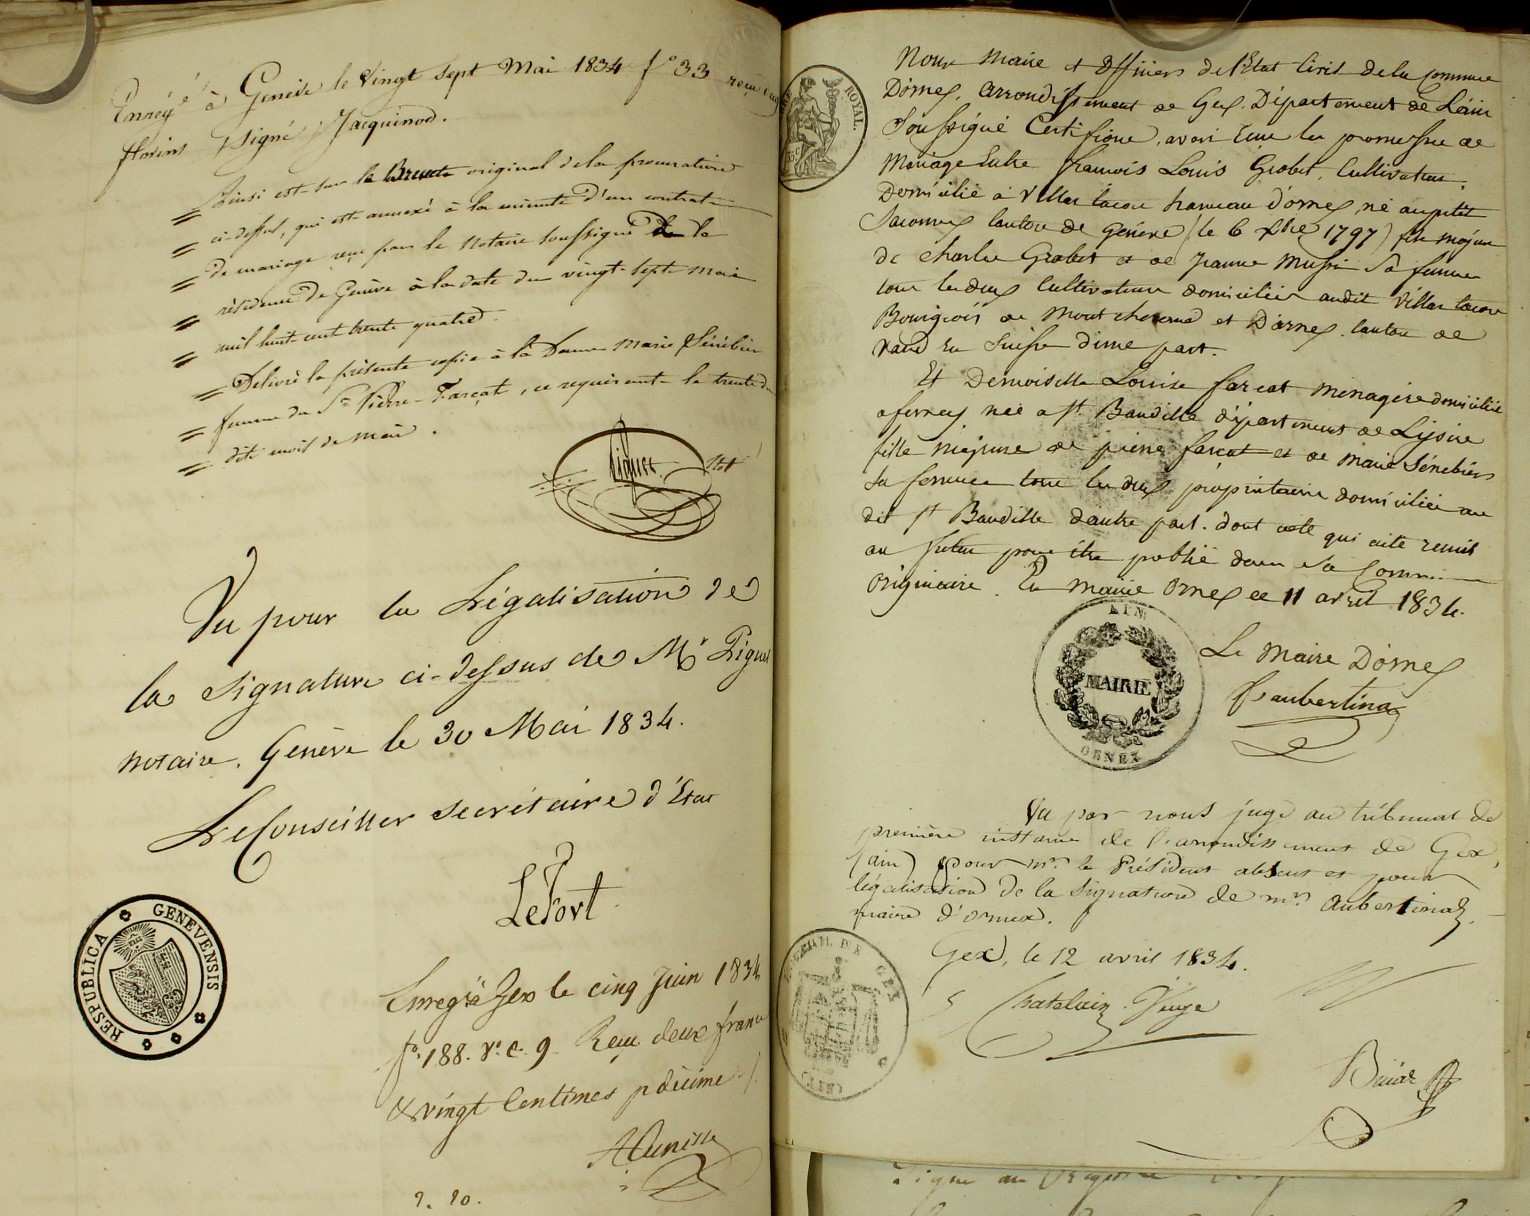 Enregé à Genève le Vingt Sept Mai 1834 fo 33 reçu
florins signé Jacquinod.
Ainsi est sur le Brevet original de la procuration
ci-dessus, qui est annexé à la minute d'un contrat
de mariage reçu par le Notaire soussigné de la
résidence de Genève à la date du vingt-sept mai
mil huit cent trente quatre.
Délivré la présente copie à la Dame Marie Sénébier
femme du Sr Pierre Farçat, ce requérant le trente
dit mois de Mai.
Vu pour la Légalisation de
la Signature ci-dessus de Mr Piguet
notaire. Genève le 30 Mai 1834.
Le Conseiller secrétaire d'État
LeFort
RESPUBLICA GENEVENSIS
Enregé à Gex le cinq Juin 1834
fo 188. Vo c. 9. Reçu deux francs
& vingt Centimes p décime
2. 20.
ROYAL.
Nous Maire et Officiers de l'Etat Civil de la Commune
Dornex, arrondissement de Gex, Département de L'ain
Soussigné Certifions, avoir Lue la promesse de
Mariage Entre françois Louis Grobet, Cultivateur,
Domicilié à Villar tacon hameau d'ornex, né au petit
Saconnex canton de Genève (le 6 Xbre 1797) fils majeur
de Charles Grobet et de Jeanne Sa femme
tous les deux Cultivateurs domiciliés audit Villar tacon
Bourgeois de Montcherand et D'ornex. Canton de
Vaud en Suisse d'une part.
Et Demoiselle Louise farcat Ménagère domiciliée
a ferney née a st. Baudille département de L'isère
fille majeure de pierre farcat et de marie Sénébier
Sa femme tous les deux propriétaire domiciliés au
dit st Baudille d'autre part. dont acte qui a été remis
au futur pour être publié dans sa Commune
Originaire. En Mairie Ornex ce 11 avril 1834.
Le Maire D'ornex
f aubertinaz
AIN
MAIRIE
ORNEX
Vu par nous juge au tribunal de
première instance de l'arrondissement de Gex,
(ain) (pour Mr. le Président absent et pour
légalisation de la Signature de mr. Aubertinaz,
maire d'ornex.
Gex, le 12 avril 1834.
Chatelain Juge
DE GEX
(AIN)